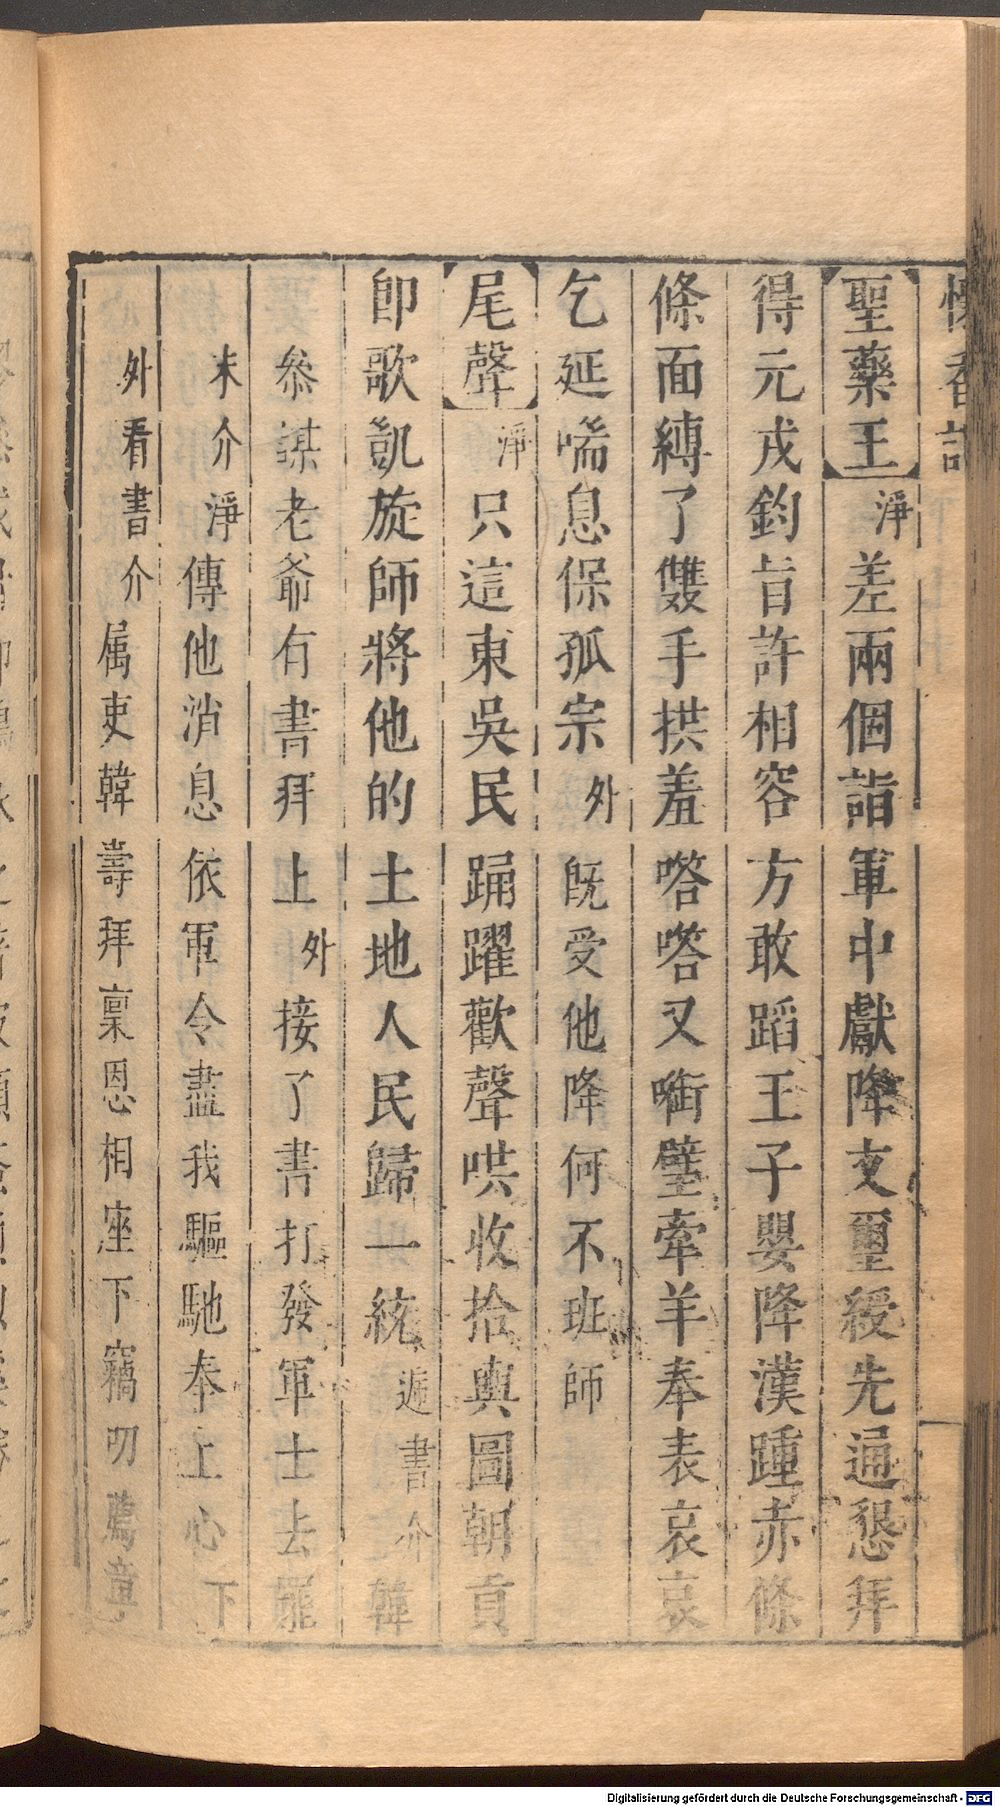 懷香記
聖藥王淨差兩個詣軍中獻降文璽綬先通懇拜
得元戎鈞旨許相容方敢蹈王子嬰降漢踵赤條
條面縛了雙手拱羞嗒嗒又啣璧牽羊奉表哀哀
乞延喘息保孤宗外旣受他降何不班師
尾聲淨只這東吳民踊躍歡聲哄收拾輿圖朝貢
卽歌凱旋師將他的土地人民歸一統遞書介韓
叅謀老爺有書拜上外接了書打發軍士去罷
末介淨傳他消息依軍令盡我驅馳奉上心下
外看書介属吏韓壽拜稟恩相座下竊叨薦章
Digitalisierung gefördert durch die Deutsche Forschungsgemeinschaft - DFG